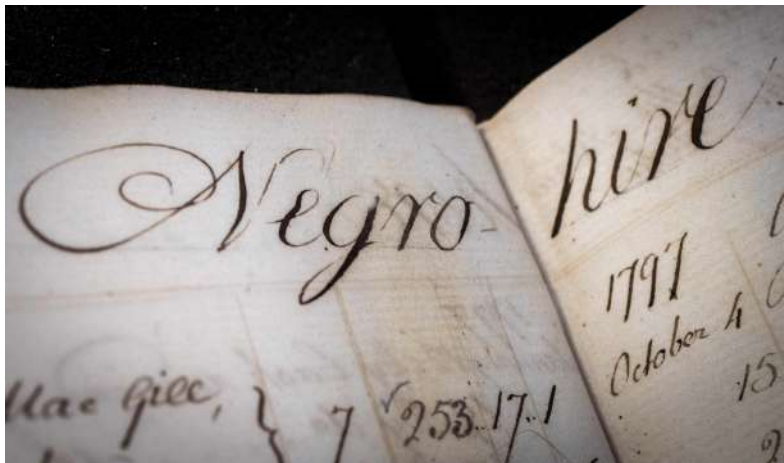 Negro hire
1797
October 4
15
Mac Gill, } 7 253..17..1